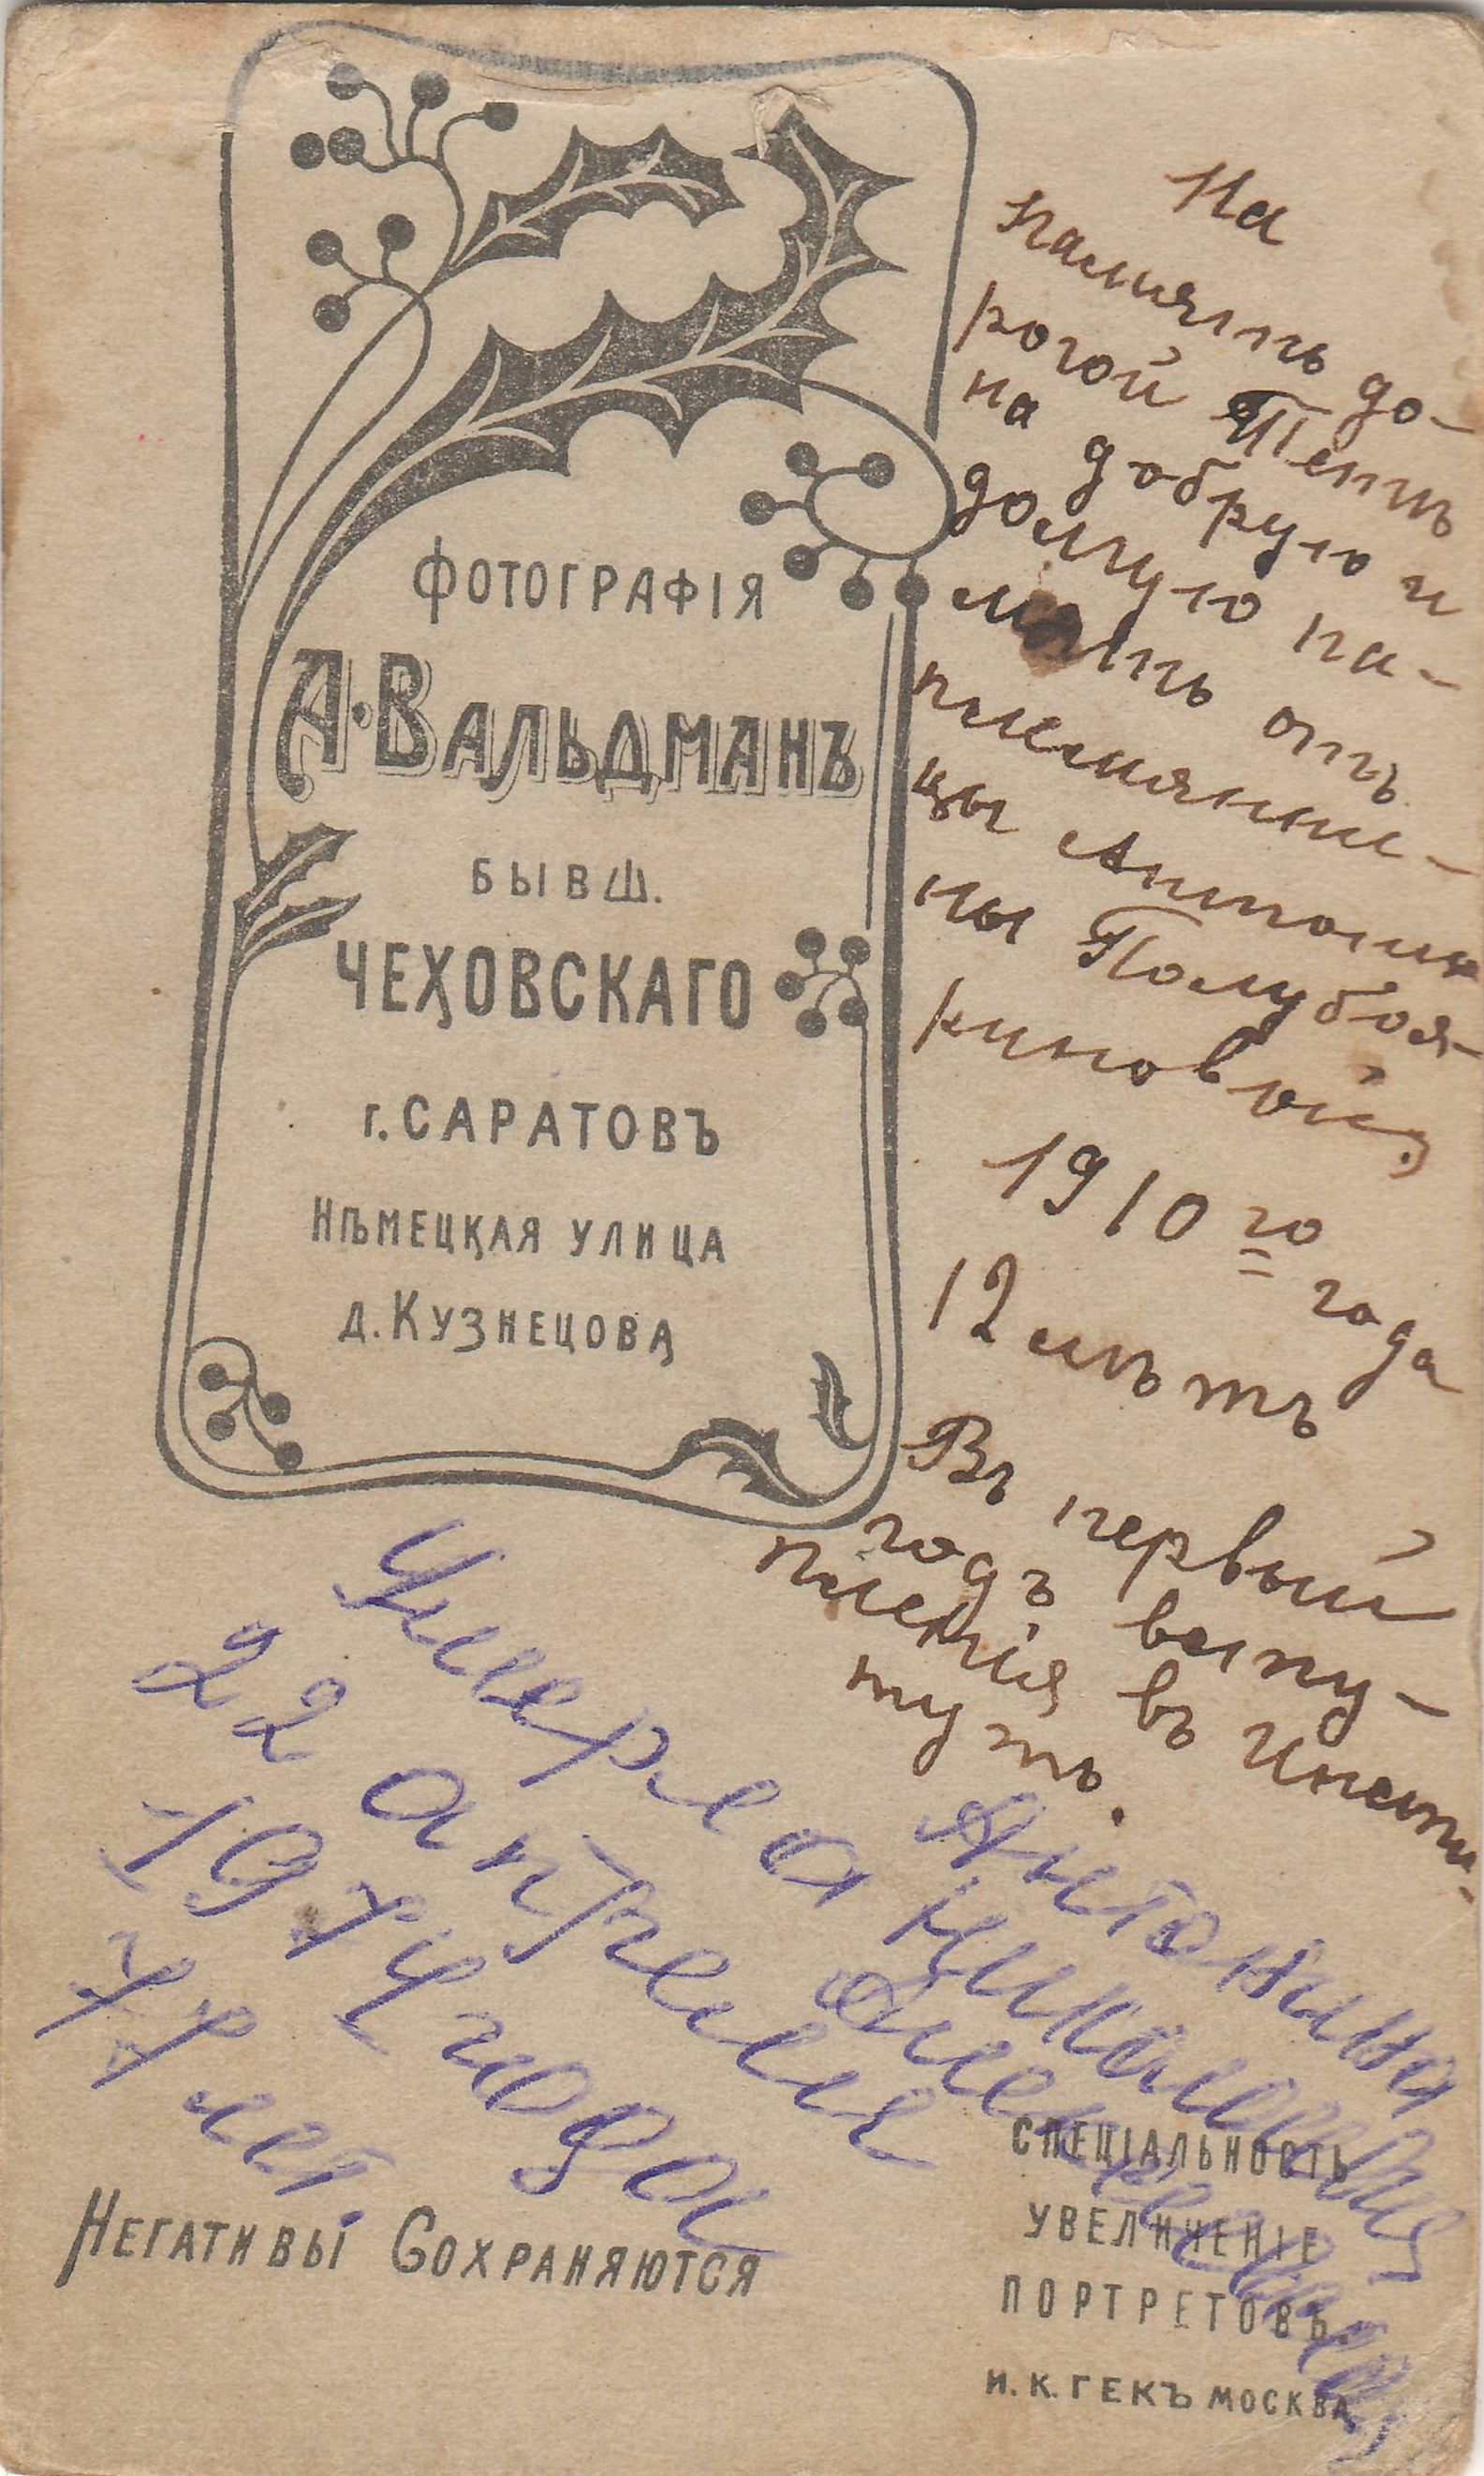 ФОТОГРАФІЯ
А. ВАЛЬДМАНЪ
БЫВШ.
ЧЕХОВСКАГО
г. САРАТОВЪ
НѢМЕЦКАЯ УЛИЦА
д. КУЗНЕЦОВА
На
память до-
рогой Тентъ
на добрую и
долгую па-
мять отъ
племянни-
цы Антони
ны Полубоя-
риновой.
1910 го года
12 лѣтъ
Въ первый
годъ выпу-
пленія въ Инсти-
тутъ.
Умерла Антонина
Николаевна
22 апреля
1974 года
77 лет.
НЕГАТИВЫ СОХРАНЯЮТСЯ
СПЕЦІАЛЬНОСТЬ
УВЕЛИЧЕНІЕ
ПОРТРЕТОВЪ.
И. К. ГЕКЪ МОСКВА